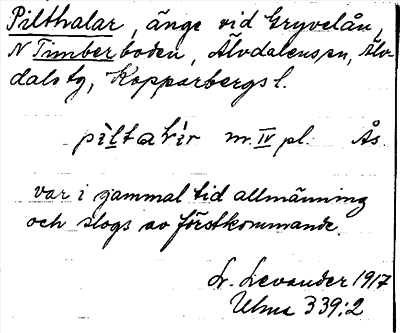 Pilthalar, änge vid Gryvelån,
N Timberboden, Älvdalens sn, Älv-
dals tg, Kopparbergs l.
pìltahìr m. IV pl. Ås.
var i gammal tid allmänning
och slogs av förstkommande.
L. Levander 1917
Ulma 339:2